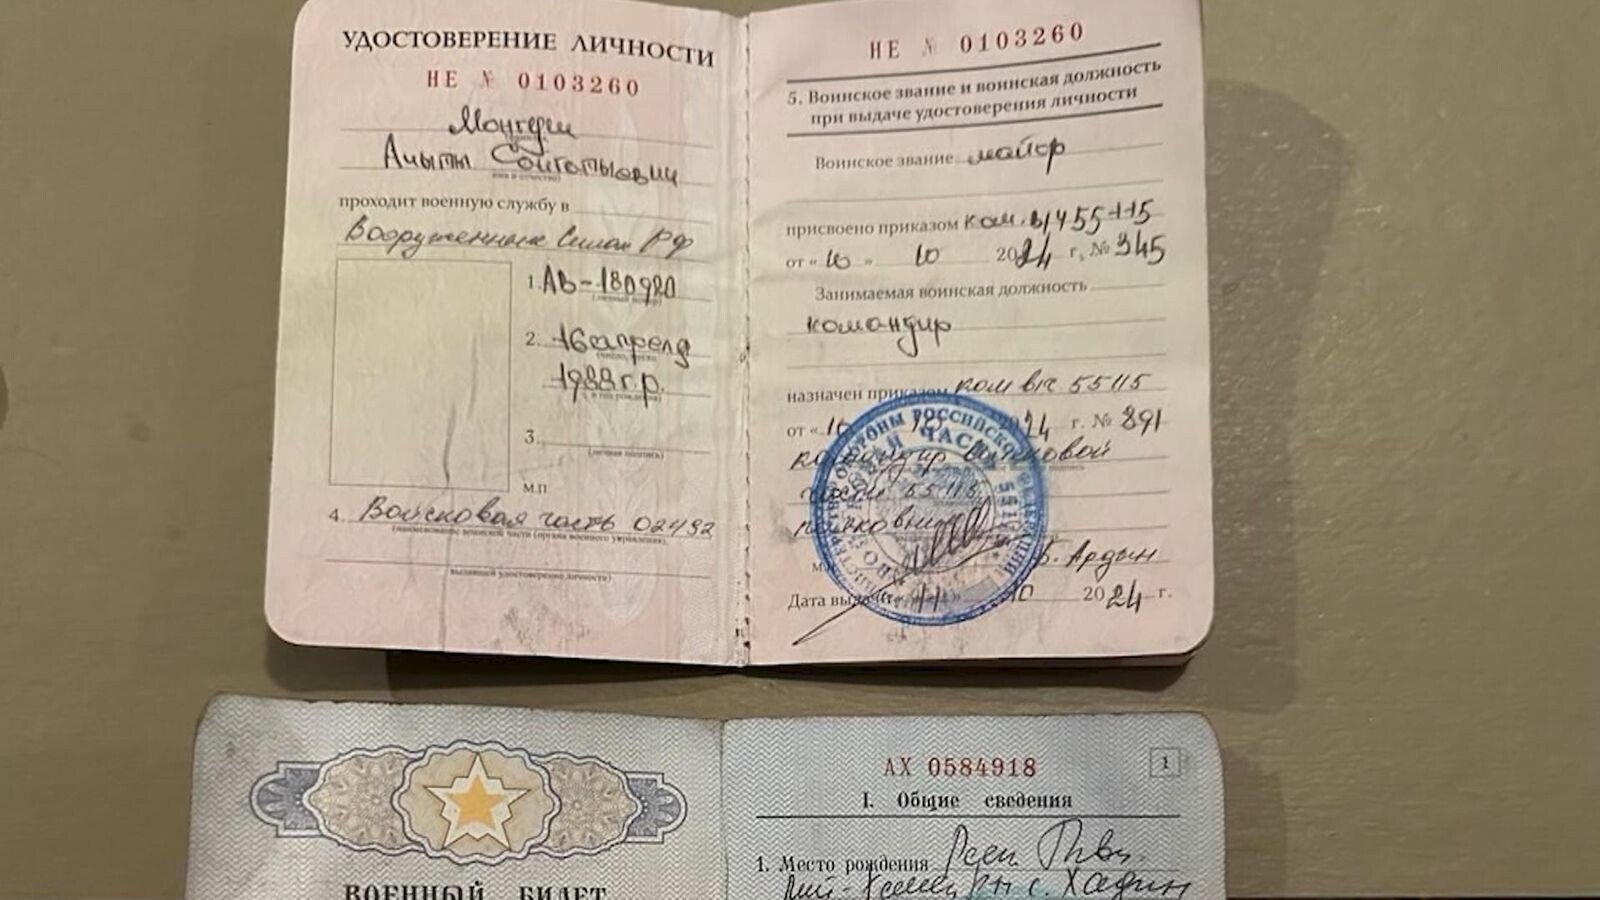 УДОСТОВЕРЕНИЕ ЛИЧНОСТИ
НЕ № 0103260
Монгуш
Ачыты Сойгатыович
имя и отчество)
проходит военную службу в
Вооруженных Силах РФ
1. АВ-180920
(личный номер)
2. 16 апреля
(число, месяц
1988 г.р.
и год рождения)
3.
(личная подпись)
М.П
4. Войсковая часть 02492
(наименование воинской части (органа военного управления),
выдавшей удостоверение личности)
НЕ № 0103260
5. Воинское звание и воинская должность
при выдаче удостоверения личности
Воинское звание майор
присвоено приказом ком. в/ч 55115
от « 10 » 10 2024 г. № 345
Занимаемая воинская должность
командир
назначен приказом ком в/ч 55115
от « 10 2024 г. № 391
командир войсковой
части 55115
полковник
В. Ардын
Дата выдачи « 11 » 10 2024 г.
ВОЕННЫЙ БИЛЕТ
АХ 0584918
1
I. Общие сведения
1. Место рождения Респ. Тыва
с. Хадын